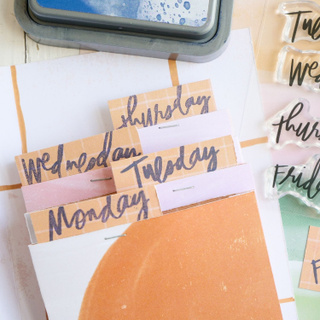 thursday
Wednesday
Tuesday
Monday
Tue
Wed
thurs
Frida
F